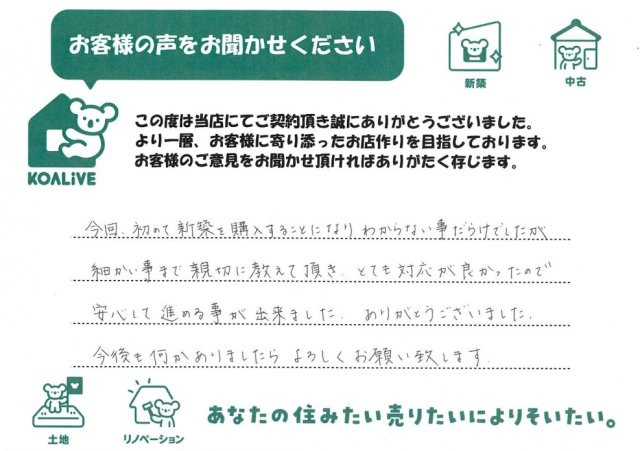 お客様の声をお聞かせください
新築
中古
KOALiVE
この度は当店にてご契約頂き誠にありがとうございました。
より一層、お客様に寄り添ったお店作りを目指しております。
お客様のご意見をお聞かせ頂ければありがたく存じます。
今回、初めて新築を購入することになりわからない事だらけでしたが
細かい事まで親切に教えて頂き、とても対応が良かったので
安心して進める事が出来ました。ありがとうございました。
今後も何かありましたらよろしくお願い致します。
土地
リノベーション
あなたの住みたい売りたいによりそいたい。